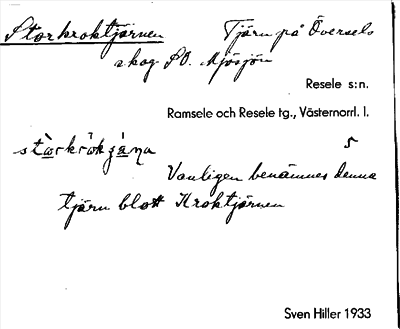 Storkroktjärnen Tjärn på Översels
skog SO. Mjösjön
Resele s:n.
Ramsele och Resele tg., Västernorrl. l.
5
Vanligen benämnes denna
tjärn blott Kroktjärnen
Sven Hiller 1933